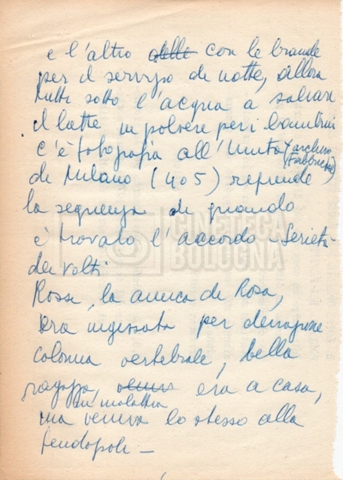 e l'altro delle con le brande
per il servizio di notte, allora
tutti sotto l'acqua a salvare
il latte in polvere per i bambini
c'è fotografia all'Unità (archivio
di Milano (405) riprende
la sequenza di quando
è trovato l'accordo - Serietà
dei volti
Rossi, la amica di Rosa,
era ingessata per
colonna vertebrale, bella
ragazza, era a casa,
in malattia
ma veniva lo stesso alla
tendopoli -
CINETECA
BOLOGNA